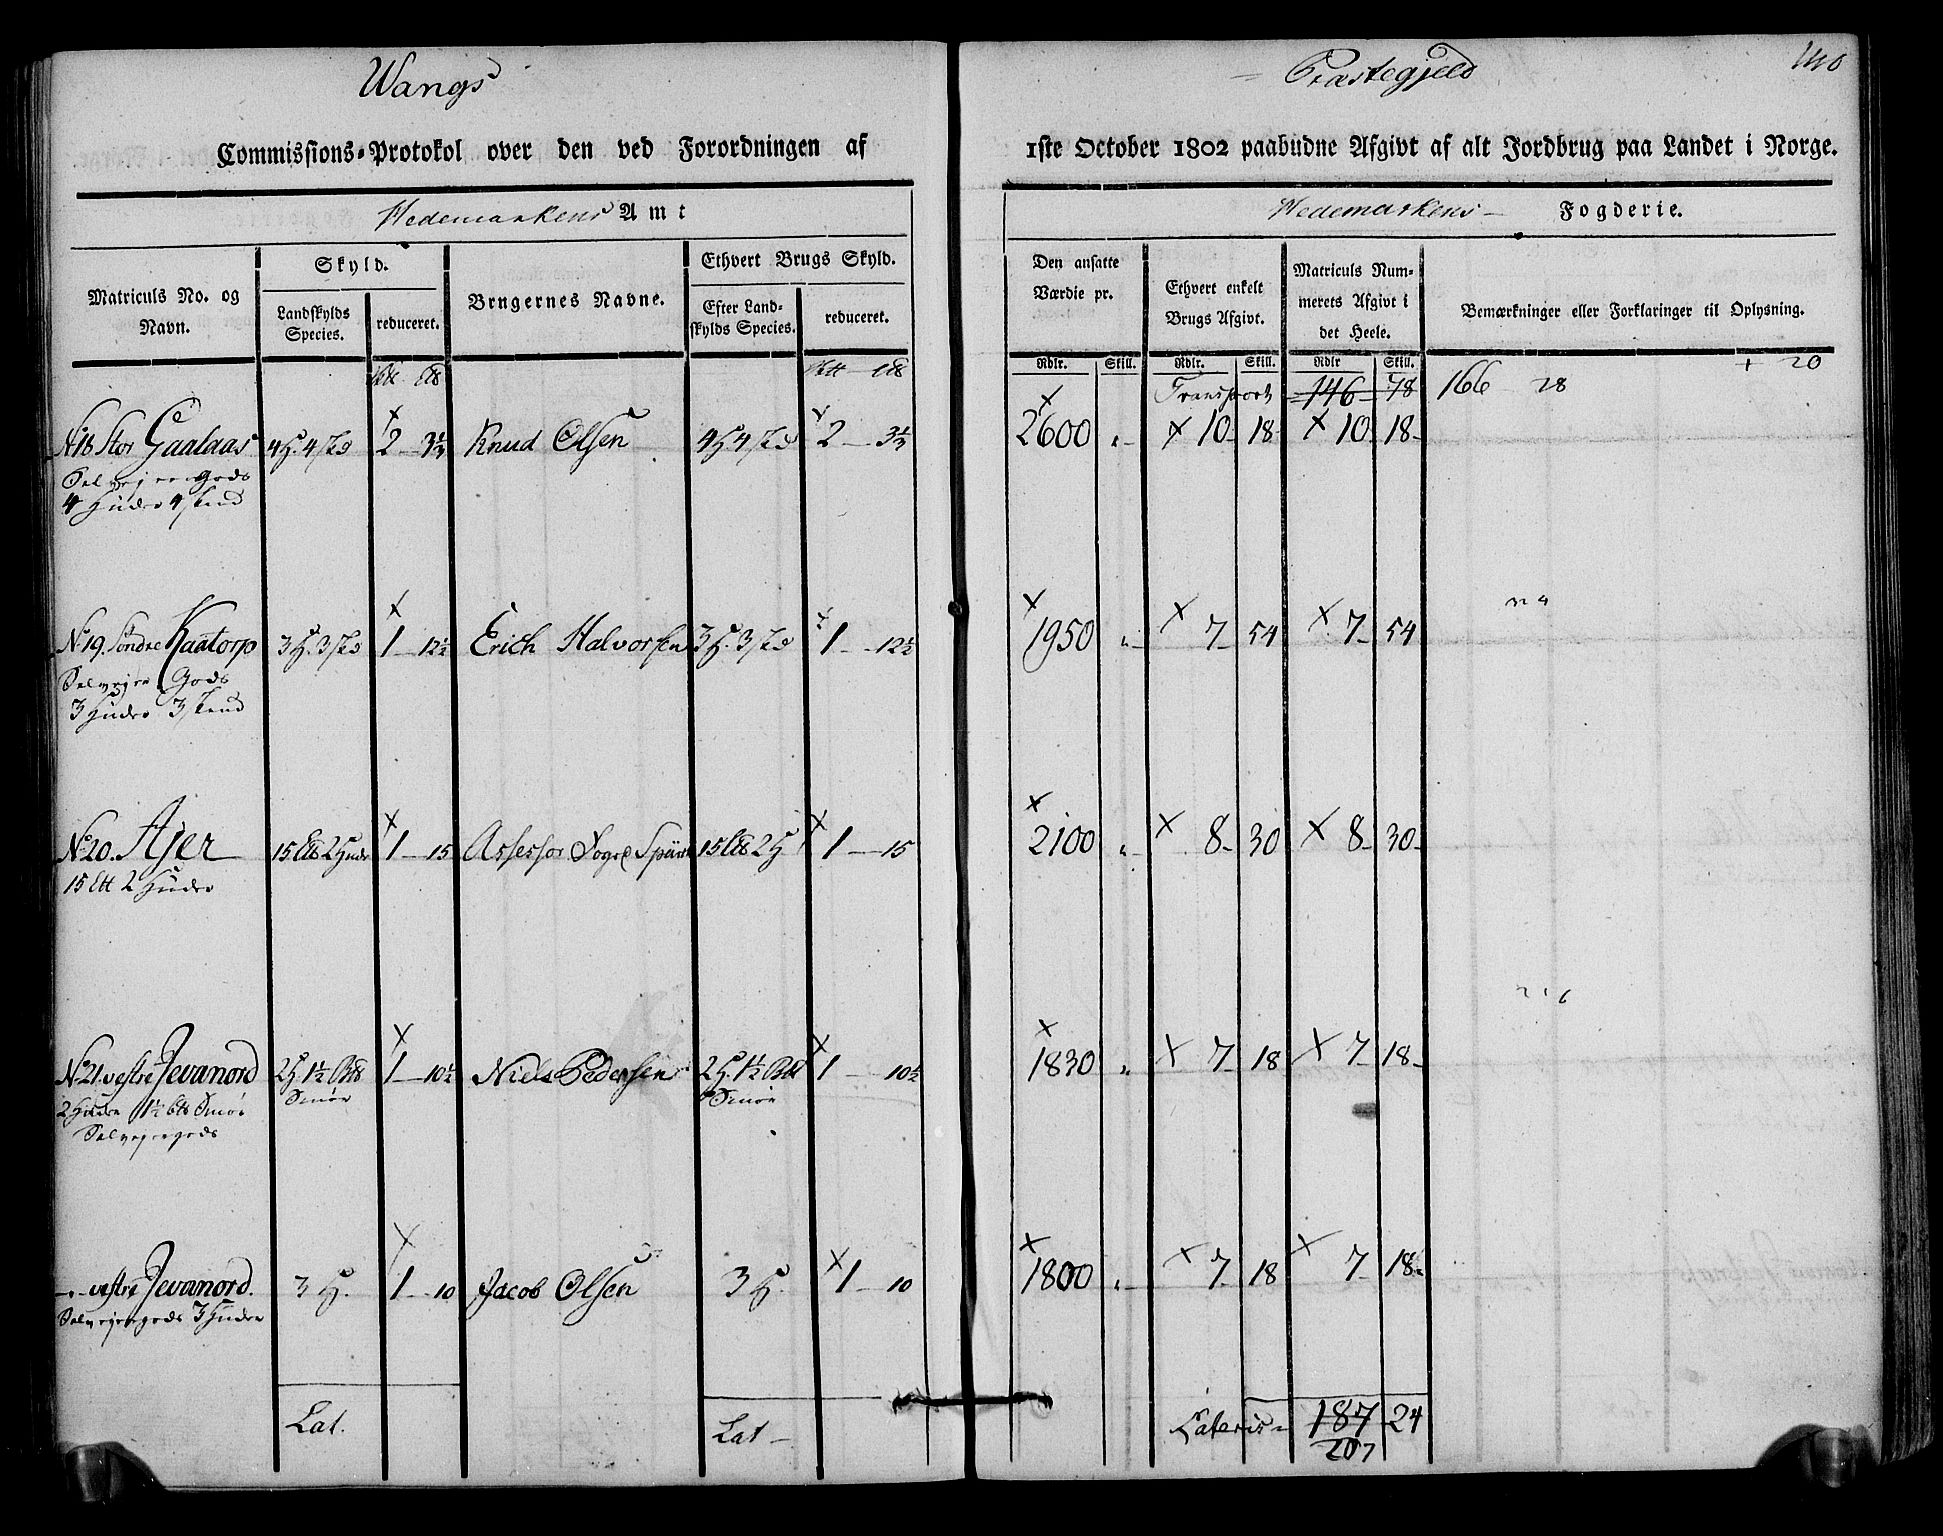 Wangs
Præstegjeld
140
Commissions-Protokol over den ved Forordningen af
1ste October 1802 paabudne Afgivt af alt Jordbrug paa Landet i Norge.
Hedemarkens Amt
Hedemarkens Fogderie.
Matriculs No. og Navn.
Skyld.
Landskylds Species.
reduceret.
Brugernes Navne.
Ethvert Brugs Skyld.
Efter Landskylds Species.
reduceret.
Den ansatte Værdie pr.
Ethvert enkelt Brugs Afgivt.
Matriculs Nummerets Afgivt i det Heele.
Bemærkninger eller Forklaringer til Oplysning.
Rdlr. Skill. Rdlr. Skill. Rdlr Skill.
+ 20
Transport 146 78 166 78
No 18 Stor Gaalaas 4 H. 4 skd 2 3½ Knud Olsen 4 H 4 skd 2 3½ 2600 „ 10 18 10 18
Selvejer Gods
4 Huder 4 skind
No 19. Søndre Kaatorp 3 H. 3 skd 1 12½ Erich Halvorsen 3 H. 3 skd 1 12½ 1950 „ 7 54 7 54
Selvejer Gods
3 Huder 3 skind
No 20. Ajer 15 2 Huder 1 15 Assessor Sogr. 15 2 H 1 15 2100 „ 8 30 8 30
15 2 Huder
No 21. vestre Jevanord 2 H. 1½ 1 10½ Niels Pedersen 2 H. 1½ 1 10½ 1830 „ 7 18 7 18
Smør
Smør
2 Huder 1½ Smør
Selvejergods
- „ - vestre Jevanord. 3 H. 1 10 Jacob Olsen 3 H. 1 10 1800 „ 7 18 7 18
Selvejergods 3 Huder
Lat.
Lat
Lateris 187 24
207